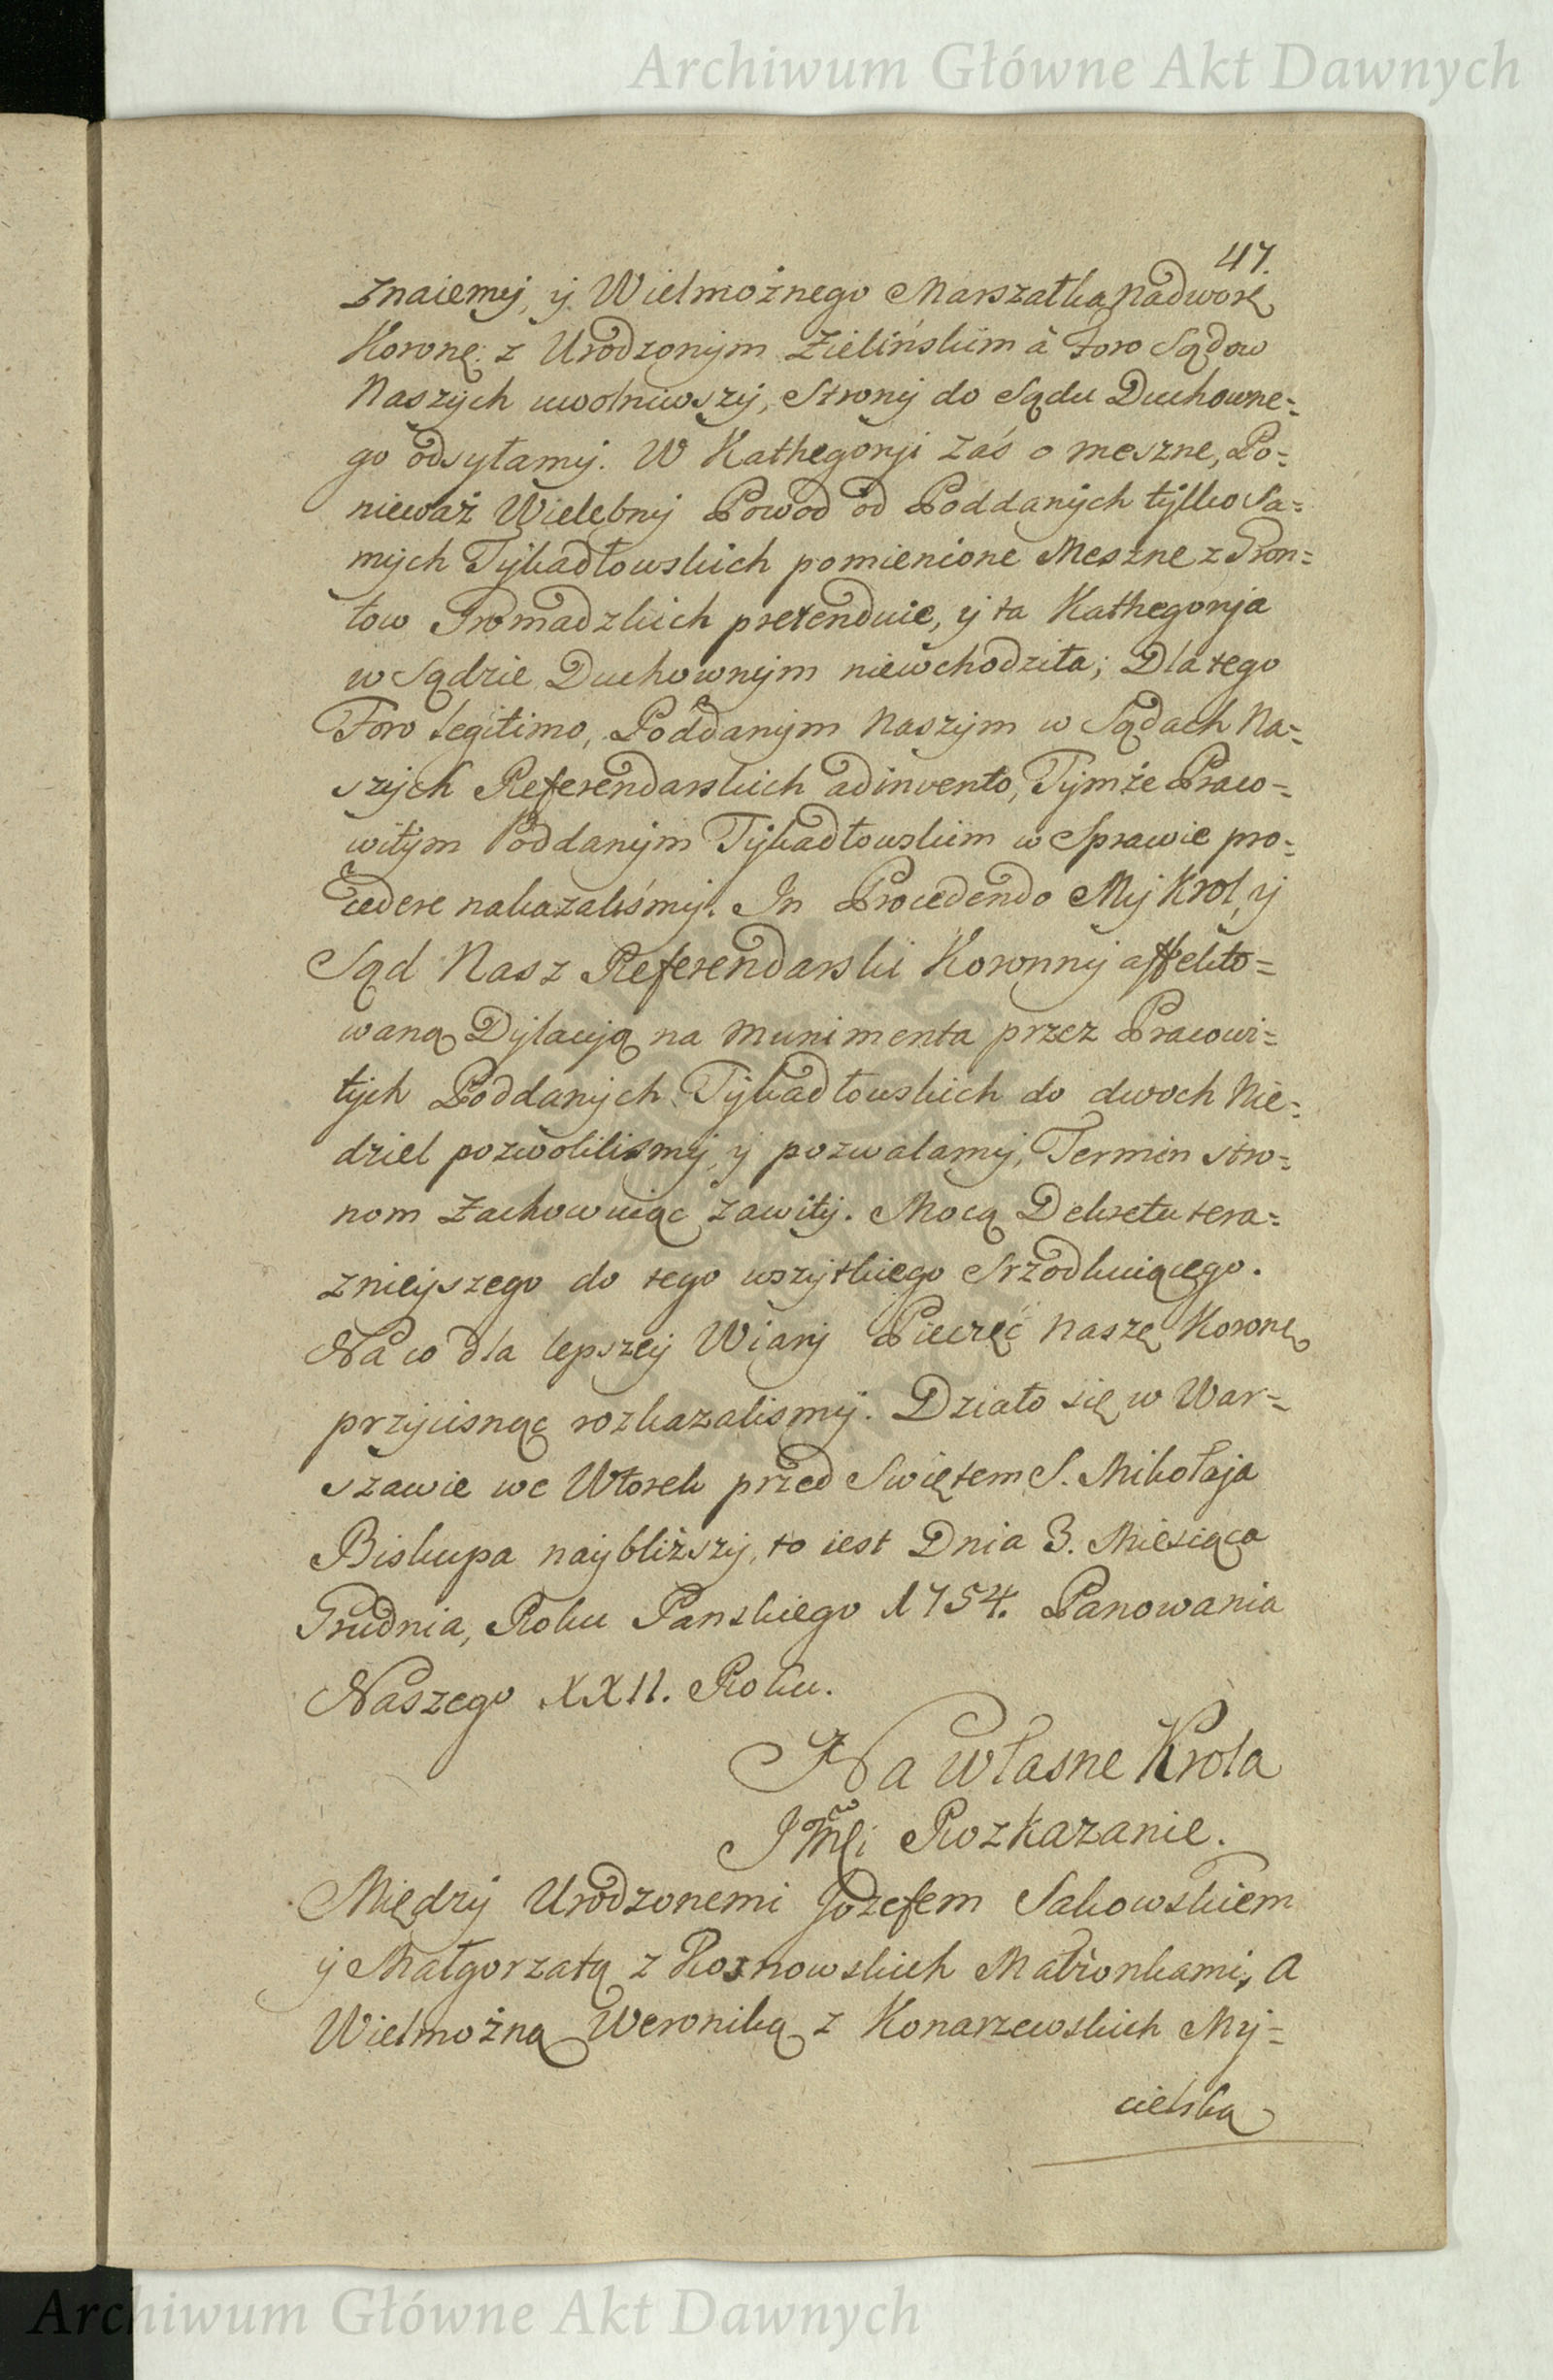 Archiwum Główne Akt Dawnych
47.
znaiemy, y Wielmożnego Marszałka Nadworę
Koronę: z Urodzonym Zielińskim à Foro Sądow
Naszych uwolniwszy, Strony do Sądu Duchowne=
go odsyłamy. W Kathegoryi zaś o meszne, Po=
nieważ Wielebny Powod od Poddanych tylko Sa=
mych Tykadłowskich pomienione Meszne z Gron=
tow Gromadzkich pretenduie, y ta Kathegorya
w Sądzie Duchownym niewchodziła; Dla tego
Foro legitimo, Poddanym Naszym w Sądach Na=
szych Referendarskich adinvento, Tymże Praco=
witym Poddanym Tykadłowskim w Sprawie pro=
cedere nakazaliśmy. In Procedendo My Krol, y
Sąd Nasz Referendarski Koronny affekto=
waną Dylacyą na Munimenta przez Pracowi=
tych Poddanych Tykadłowskich do dwoch Nie=
dziel pozwolilismy, y pozwalamy, Termin stro=
nom Zachowuiąc zawity. Mocą Dekretu tera=
znieyszego do tego wszytkiego Srzodkuiącego.
Na co dla lepszey Wiary Pieczęć Naszę Koronę
przycisnąć rozkazalismy. Działo się w War=
szawie we Wtorek przed Swiętem S. Mikołaja
Biskupa naybliższy, to iest Dnia 3. Miesiąca
Grudnia, Roku Panskiego 1754. Panowania
Naszego XXII. Roku.
Na własne Krola
JMći Rozkazanie.
Między Urodzonemi Jozefem Sakowskiem
y Małgorzatą z Rosnowskich Małżonkami, A
Wielmożną Weroniką z Konarzewskich My=
cielską
Archiwum Główne Akt Dawnych